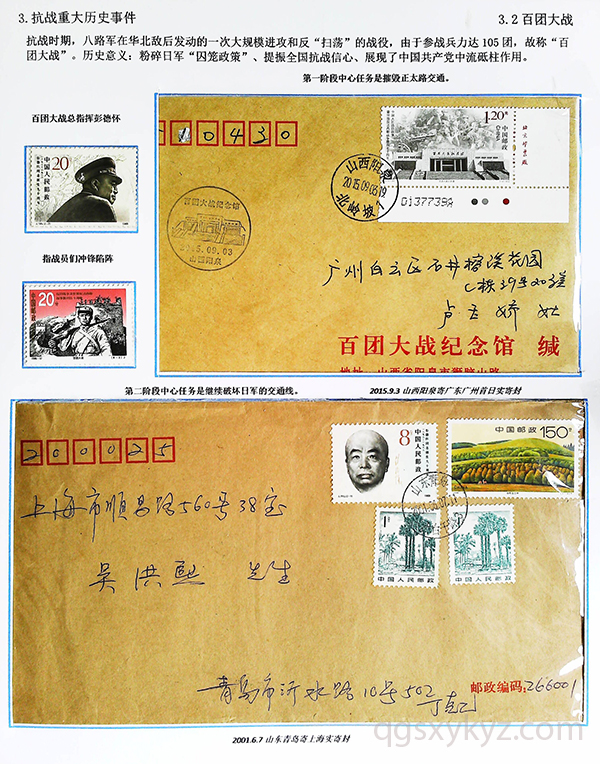 3.抗战重大历史事件
3.2百团大战
抗战时期，八路军在华北敌后发动的一次大规模进攻和反“扫荡”的战役，由于参战兵力达105团，故称“百
团大战”。历史意义：粉碎日军“囚笼政策”、提振全国抗战信心、展现了中国共产党中流砥柱作用。
第一阶段中心任务是摧毁正太路交通。
百团大战总指挥彭德怀
20分
中国人民邮政
指战员们冲锋陷阵
20分
中国邮政
10430
1.20元
山西阳泉
2015.09.03.19
北岭坡7
0137739A
百团大战纪念馆
2015.09.03
山西阳泉
广州白云区石井
1栋39号
卢
百团大战纪念馆 缄
地址：山西省阳泉市狮脑山路
第二阶段中心任务是继续破坏日军的交通线。
2015.9.3山西阳泉寄广东广州首日实寄封
200025
8分
中国人民邮政
中国邮政
150分
上海市顺昌路560号38室
1分
中国人民邮政
中国人民邮政
吴洪熙 先生
青岛市沂水路10号502
邮政编码：266001
2001.6.7山东青岛寄上海实寄封
qgsxykyz.com